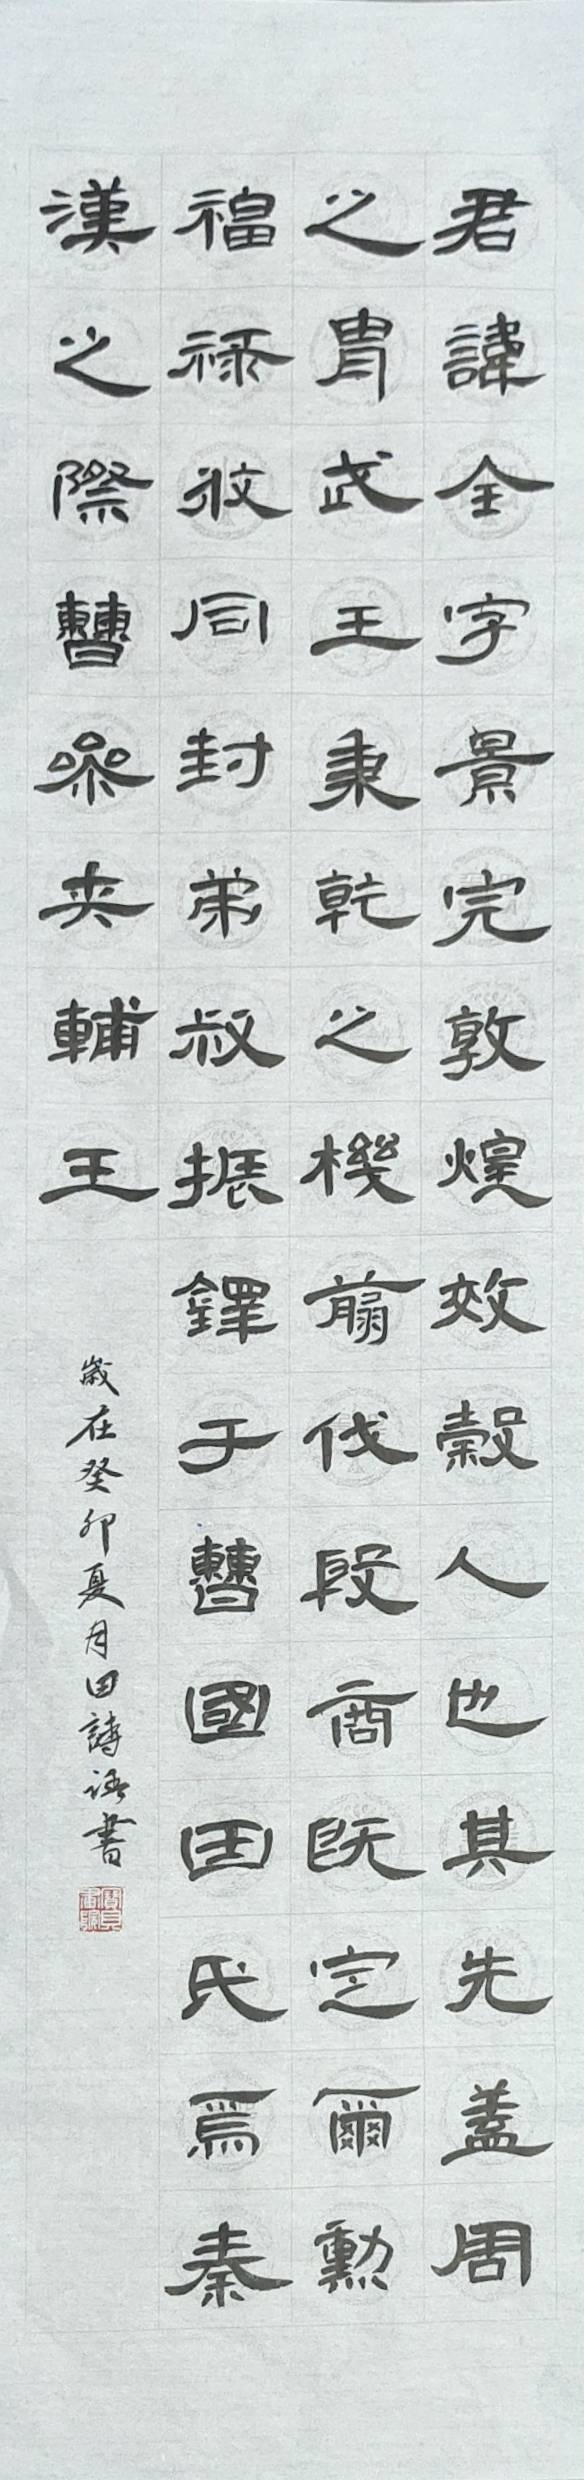 君諱全字景完敦煌效穀人也其先蓋周
之胄武王秉乾之機翦伐殷商既定爾勳
福祿攸同封弟叔振鐸于曹國因氏焉秦
漢之際曹參夾輔王
歲在癸卯夏月田詩語書